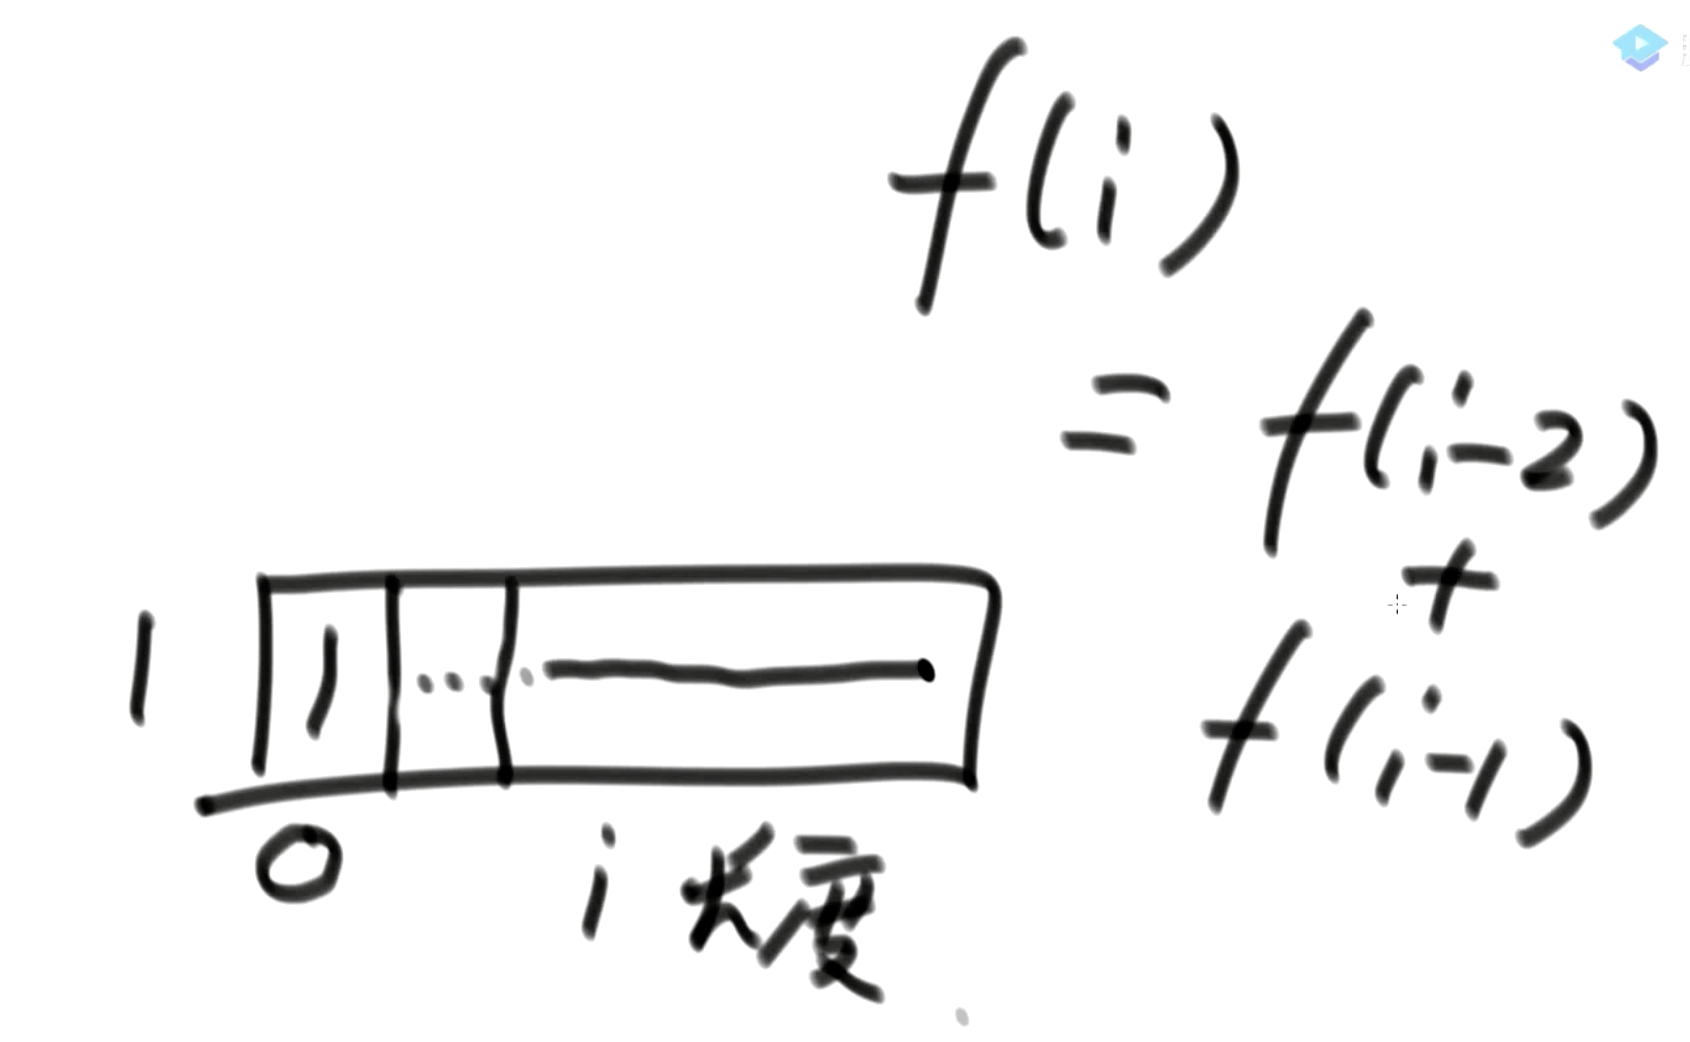 f(i)
= f(i-2)
+
f(i-1)
1 1
0 i 长度